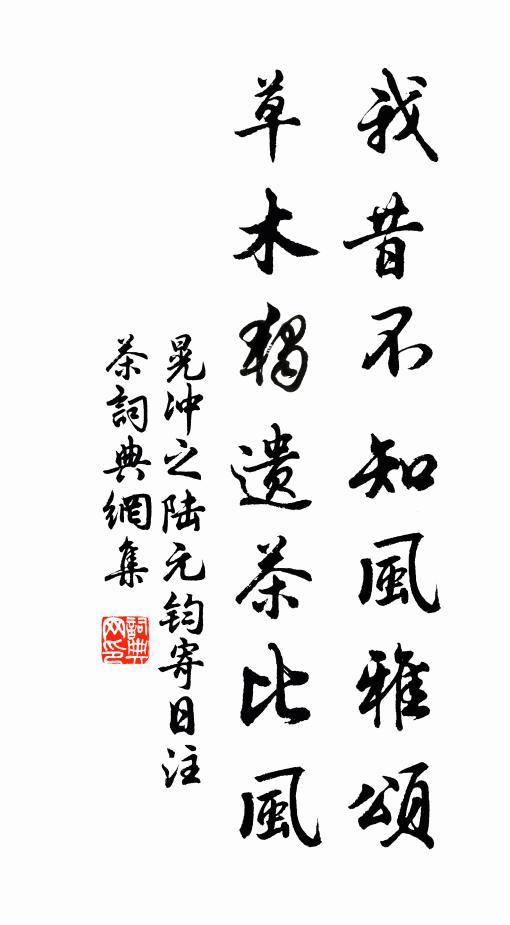 我昔不知風雅頌
草木獨遺茶比風
晁沖之陸元鈞寄日注
茶詞典網集
詞典網印